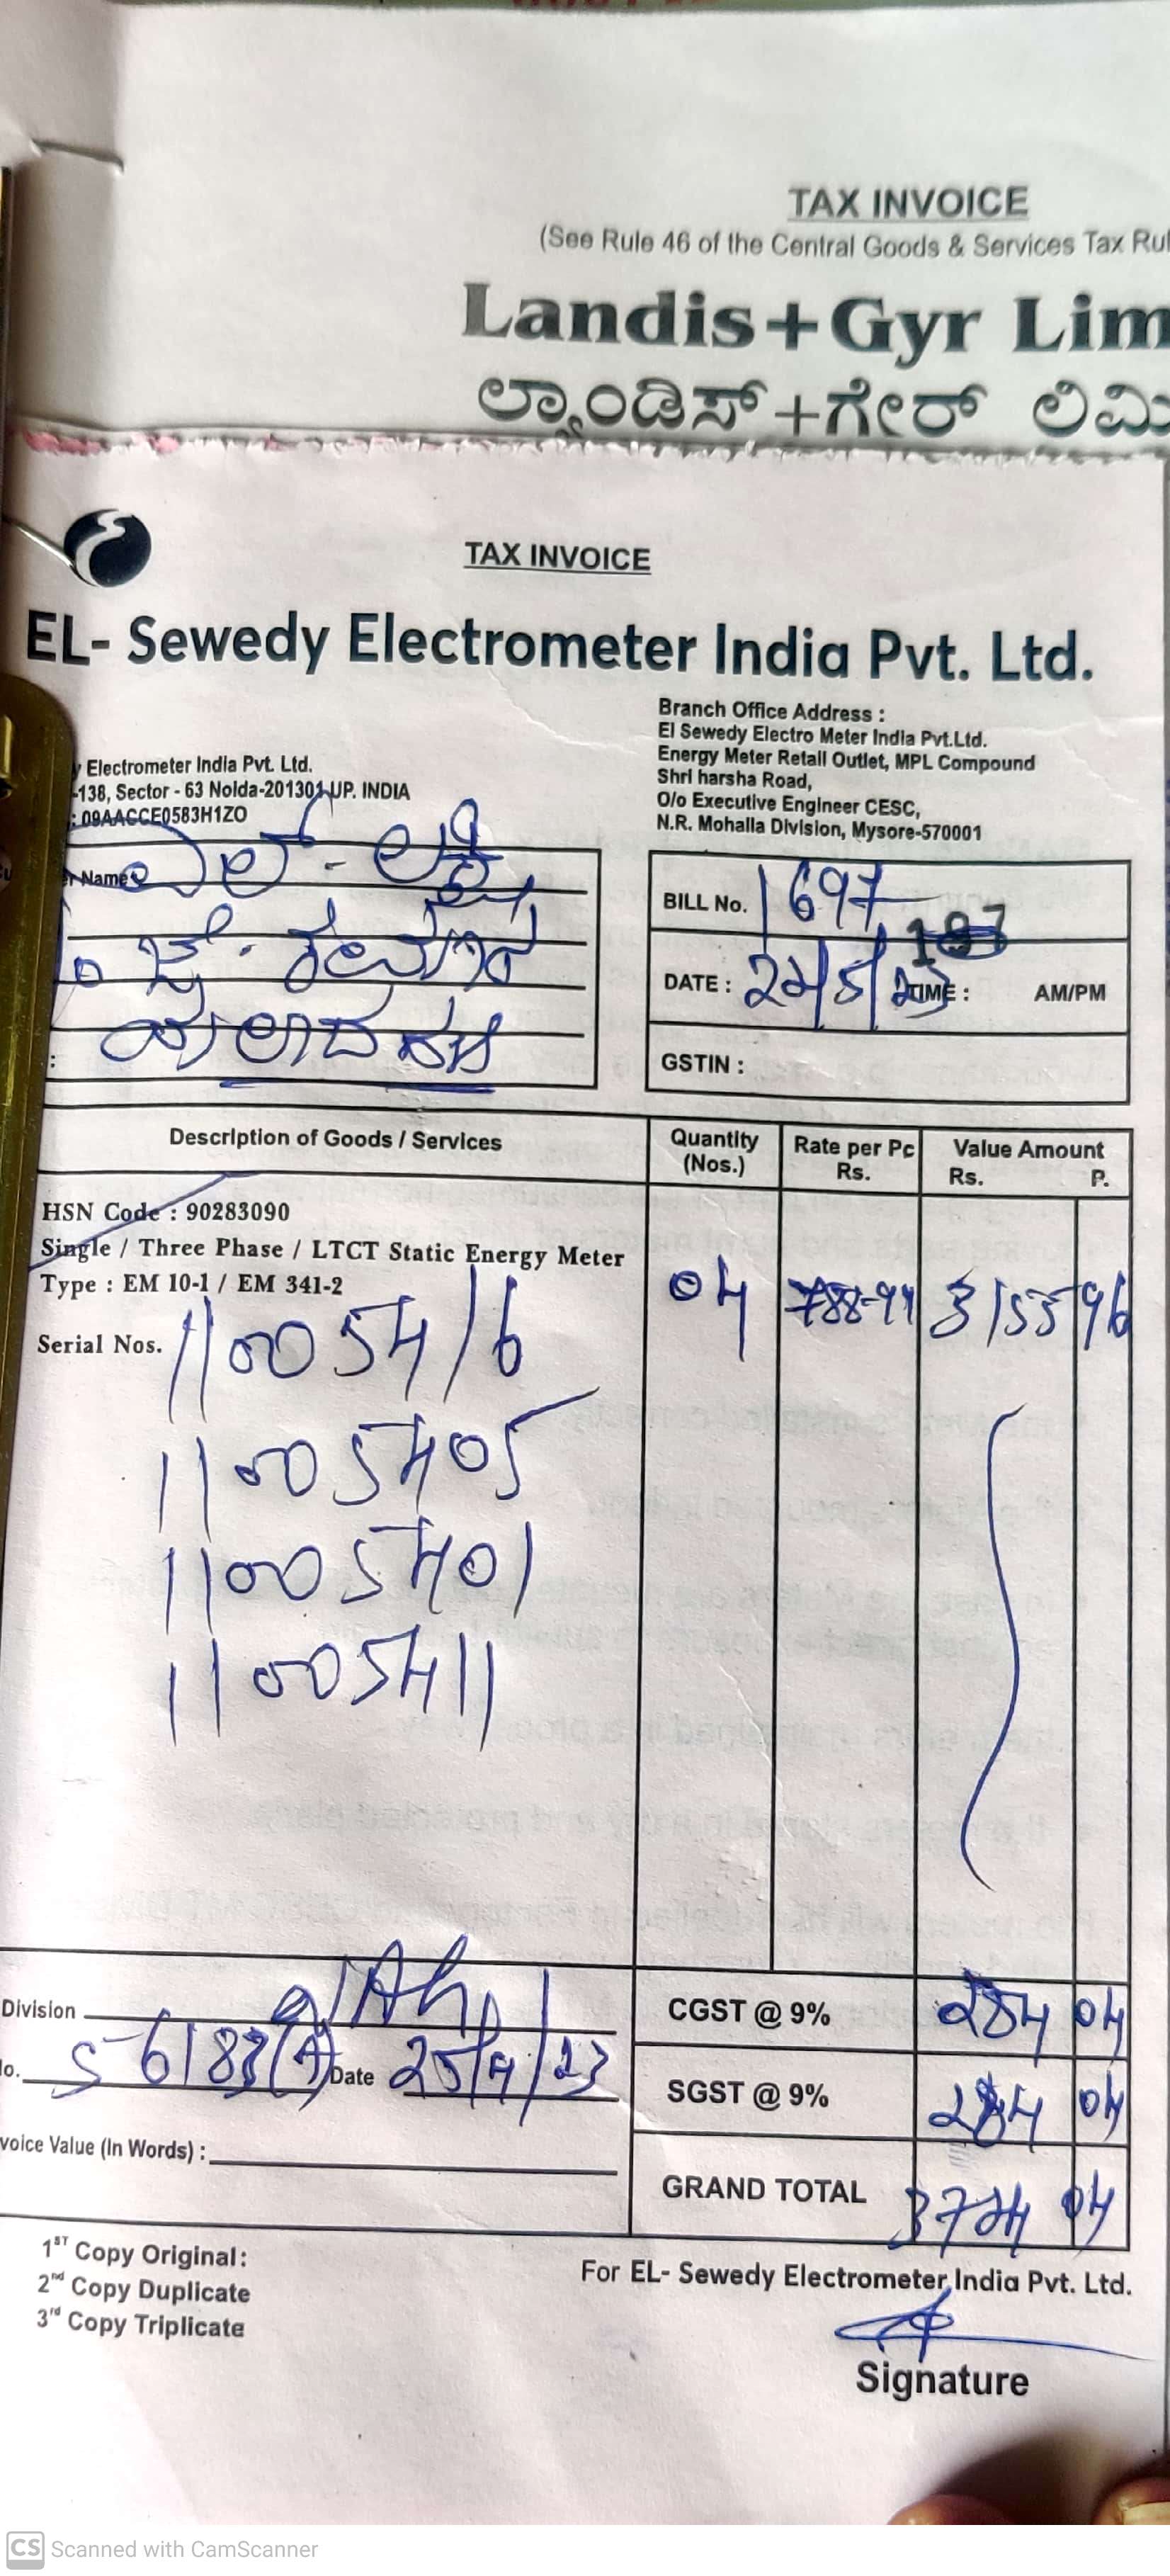 TAX INVOICE
(See Rule 46 of the Central Goods & Services Tax Rul
Landis+Gyr Lim
ಲ್ಯಾಂಡಿಸ್+ಗೇರ್ ಲಿಮಿ
TAX INVOICE
EL- Sewedy Electrometer India Pvt. Ltd.
Branch Office Address :
El Sewedy Electro Meter India Pvt.Ltd.
Energy Meter Retail Outlet, MPL Compound
Shri harsha Road,
O/o Executive Engineer CESC,
N.R. Mohalla Division, Mysore-570001
y Electrometer India Pvt. Ltd.
-138, Sector - 63 Noida-201301 UP. INDIA
: 09AACCE0583H1ZO
r Name
BILL No. 1697
187
DATE : 22/5/23 TIME : AM/PM
GSTIN :
Description of Goods / Services Quantity (Nos.) Rate per Pc Rs. Value Amount Rs. P.
HSN Code : 90283090
Single / Three Phase / LTCT Static Energy Meter
Type : EM 10-1 / EM 341-2 04 788-99 3155 96
Serial Nos. 11005416
11005405
11005401
11005411
Division
CGST @ 9% 284 04
o. S-6183(A) Date 25/4/23
SGST @ 9% 284 04
voice Value (In Words) :
GRAND TOTAL 3724 04
1ST Copy Original:
2nd Copy Duplicate
3rd Copy Triplicate
For EL- Sewedy Electrometer India Pvt. Ltd.
Signature
CS Scanned with CamScanner